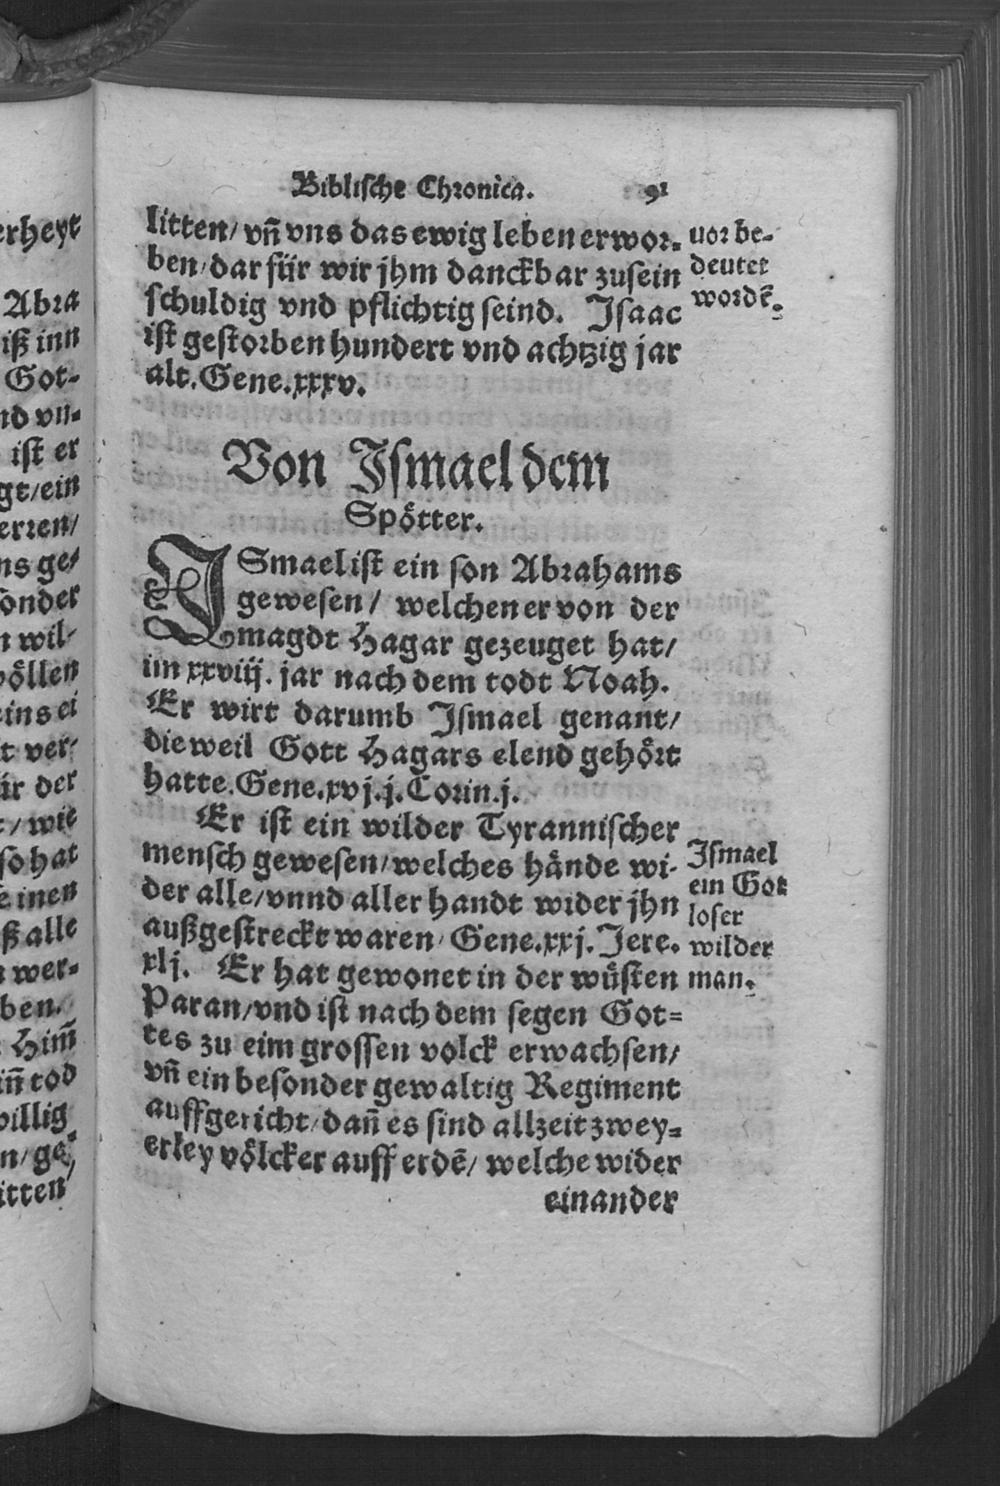 Biblische Chronica. 91
litten/ vn̄ vns das ewig leben erwor-
ben/ dar für wir jhm danckbar zusein
schuldig vnd pflichtig seind. Isaac
ist gestorben hundert vnd achtzig jar
alt. Gene.xxxv.
vor be-
deutet
wordē.
Von Ismael dem
Spötter.
ISmael ist ein son Abrahams
gewesen/ welchen er von der
magdt Hagar gezeuget hat/
im xxviij. jar nach dem todt Noah.
Er wirt darumb Ismael genant/
die weil Gott Hagars elend gehört
hatte. Gene.xvj.j. Corin.j.
Er ist ein wilder Tyrannischer
mensch gewesen/ welches hände wi-
der alle/ vnnd aller handt wider jhn
außgestreckt waren/ Gene.xxj. Jere.
xlj. Er hat gewonet in der wüsten
Paran/ vnd ist nach dem segen Got-
tes zu eim grossen volck erwachsen/
vn̄ ein besonder gewaltig Regiment
auffgericht/ dan̄ es sind allzeit zwey-
erley völcker auff erdē/ welche wider
einander
Ismael
ein Got
loser
wilder
man.
erheyt
Abra
iß inn
Got-
nd vn-
ist er
gt/ ein
erren/
ns ge-
sonder
n wil-
völlen
eins ei
t ver-
ür der
t/ wie
so hat
seinen
ß alle
n wer-
ben.
Him̄
in̄ tod
willig
n/ ge-
itten